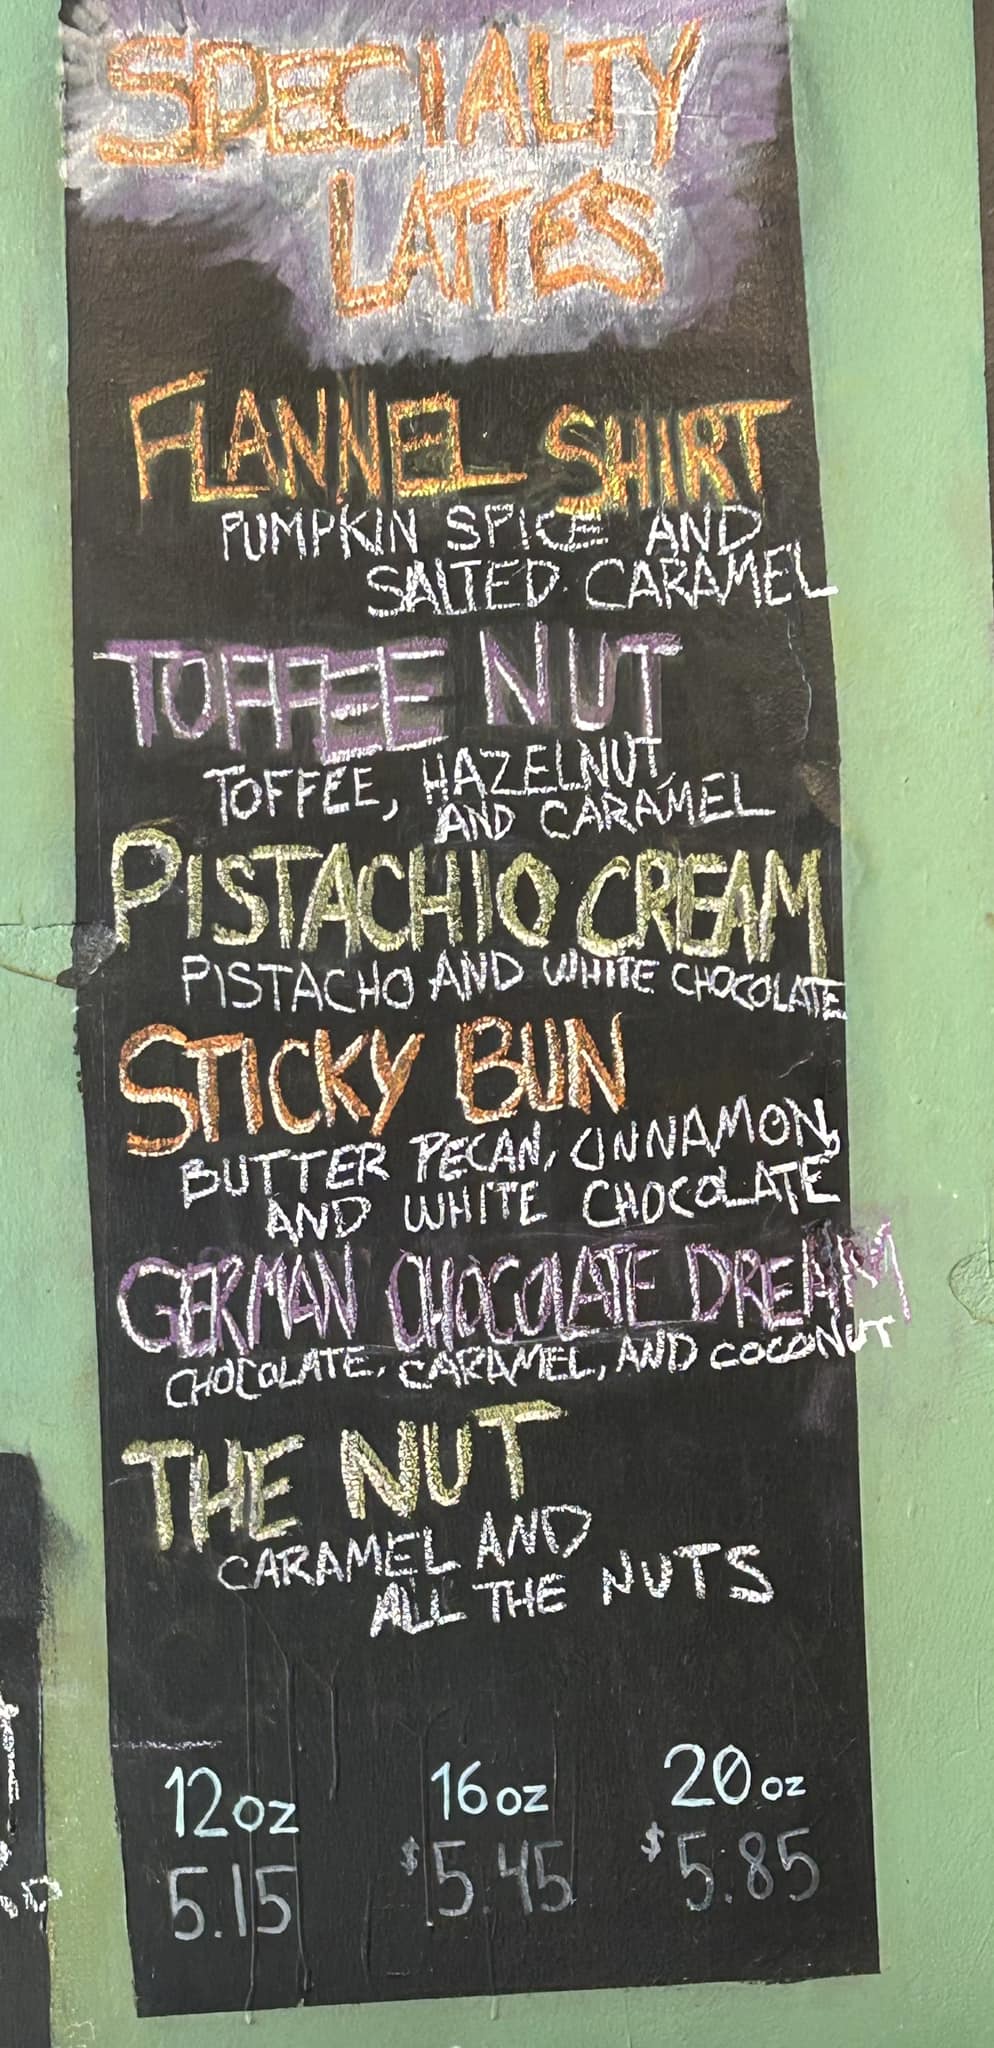 SPECIALTY
LATTES
FLANNEL SHIRT
PUMPKIN SPICE AND
SALTED CARAMEL
TOFFEE NUT
TOFFEE, HAZELNUT,
AND CARAMEL
PISTACHIO CREAM
PISTACHO AND WHITE CHOCOLATE
STICKY BUN
BUTTER PECAN, CINNAMON,
AND WHITE CHOCOLATE
GERMAN CHOCOLATE DREAM
CHOCOLATE, CARAMEL, AND COCONUT
THE NUT
CARAMEL AND
ALL THE NUTS
12oz 16oz 20oz
5.15 $5.45 $5.85